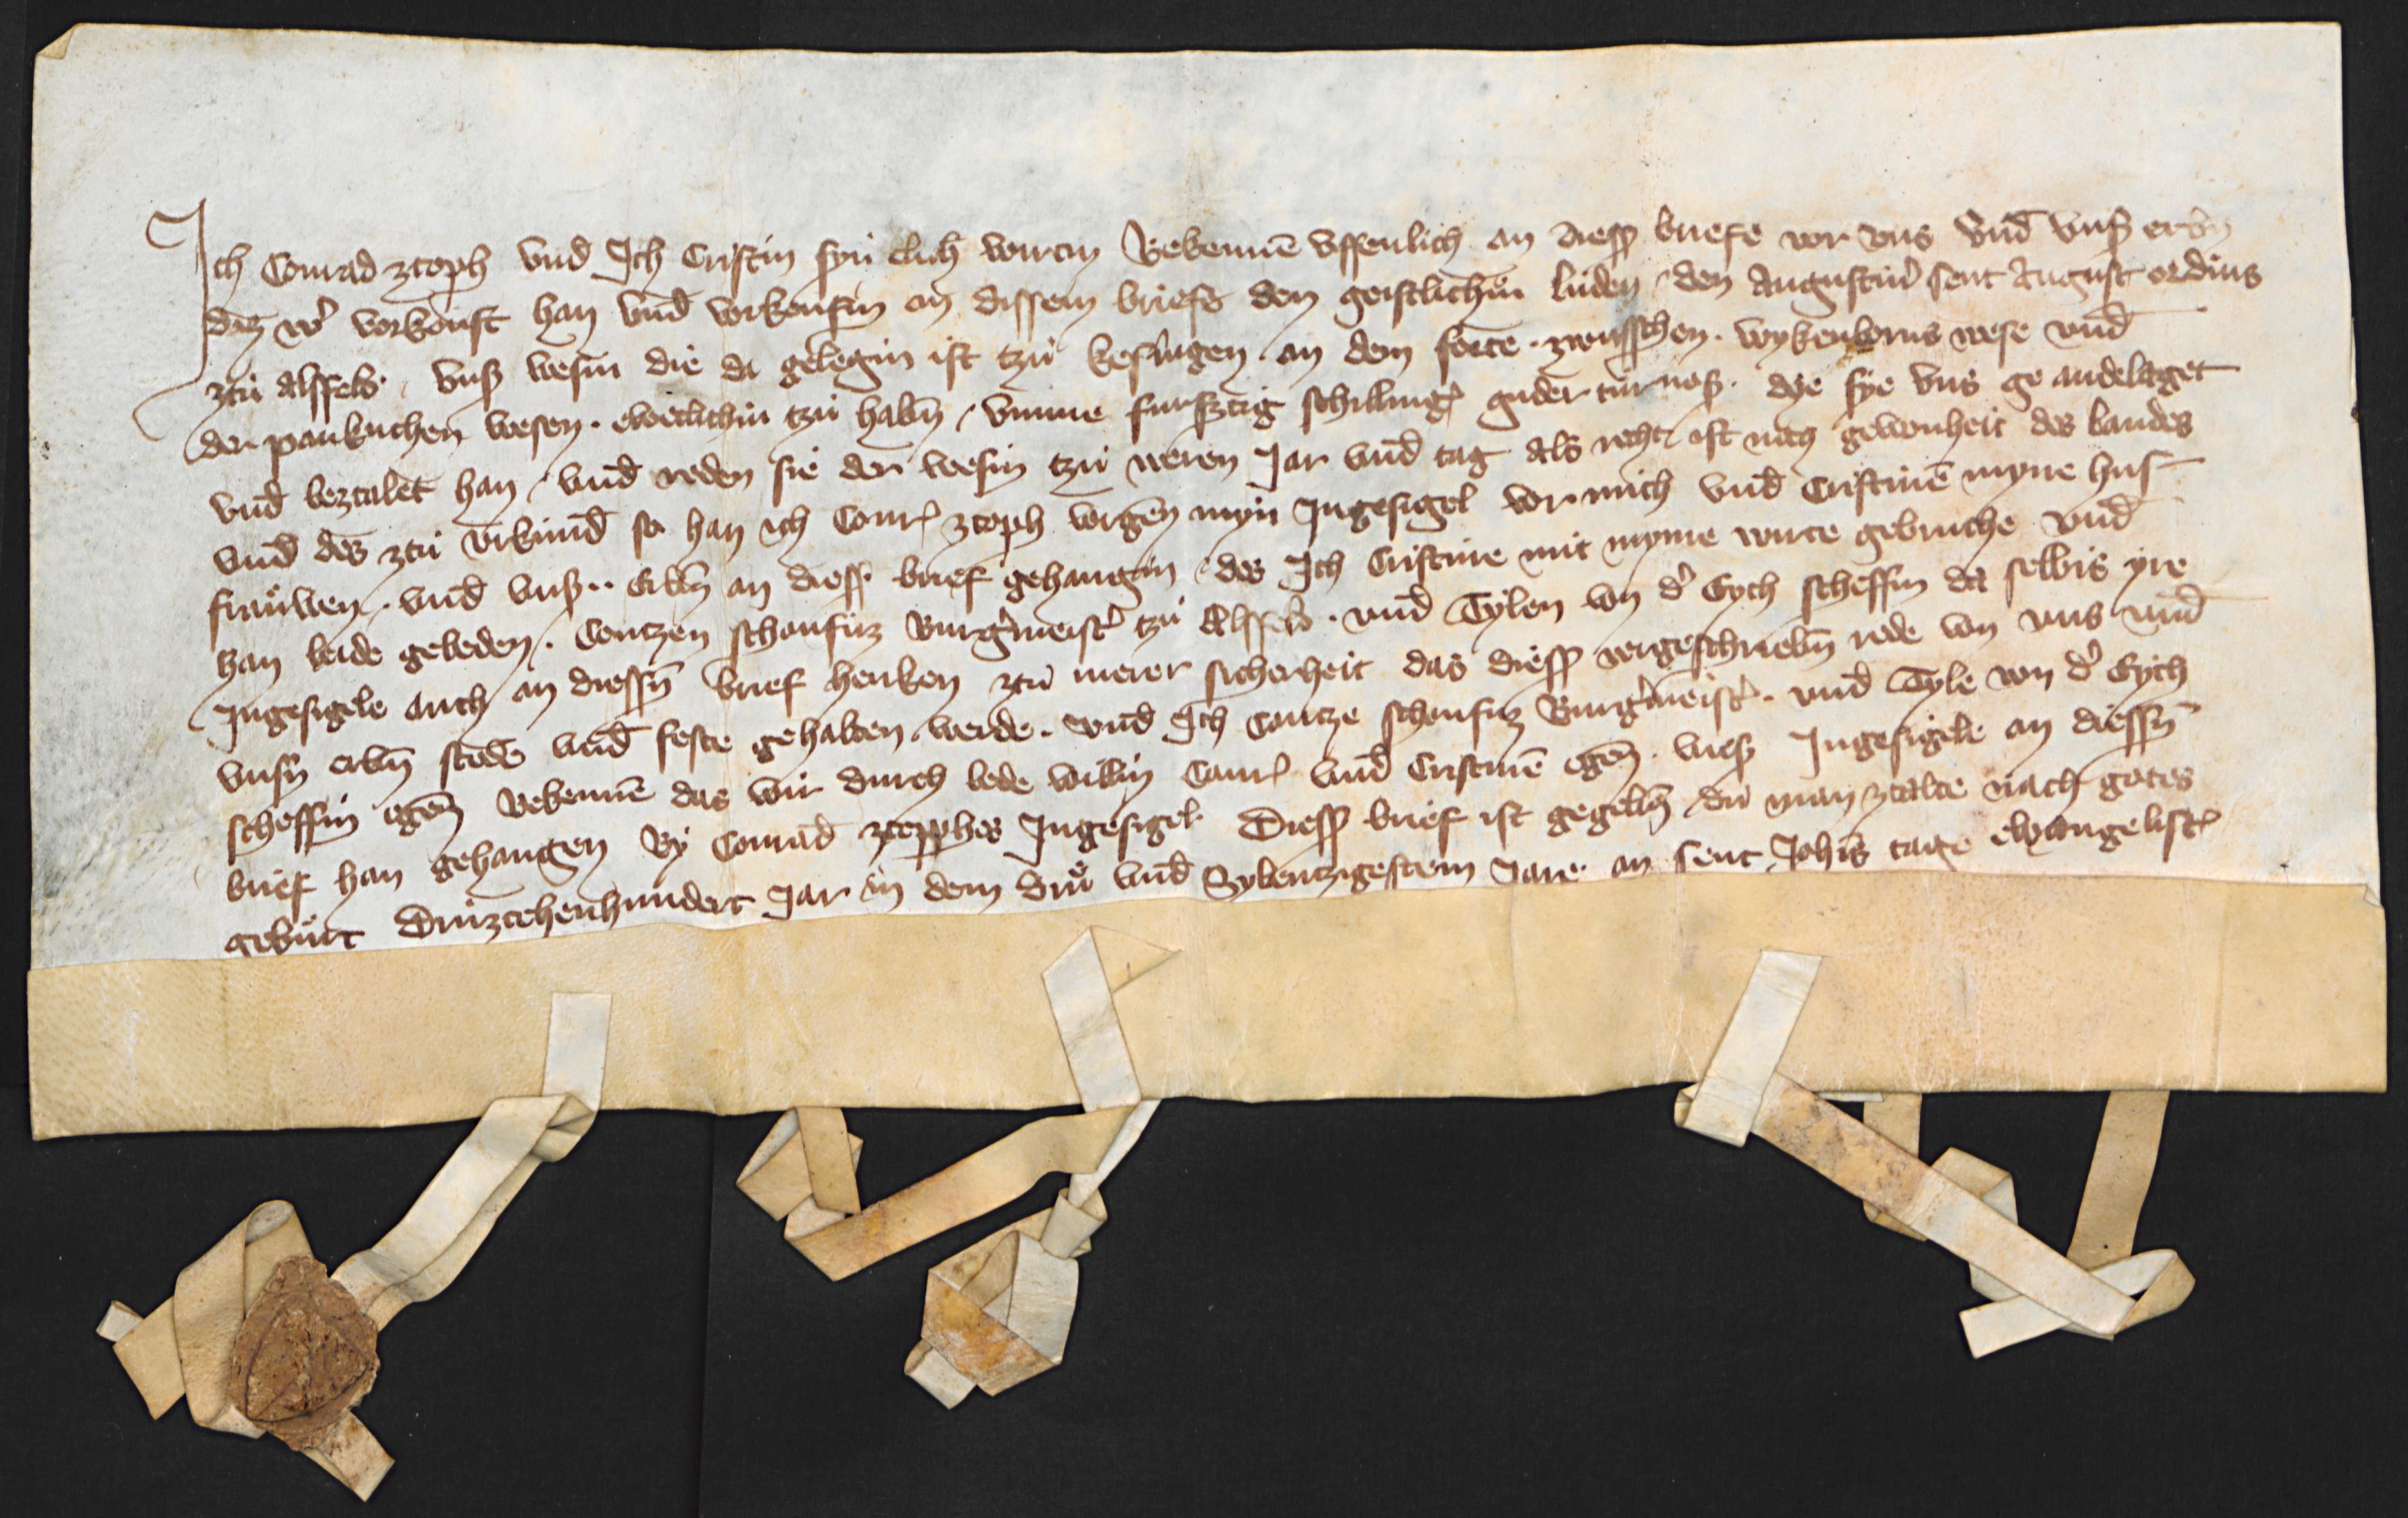 Ich Conrad ztoph vnd Ich Cristin syn elich wirtin Bekennē vffenlich an diesß briefe vor vns vnd vnsß erbn̄
daz wͬ vorkouft han vnd vorkoufin an dissem briefe den geistlichin luden den Augustinͬ sent August ordins
ztu Alsfeld vnsß wesin die da gelegin ist tzu keslingen an dem forte zwisschen wykenborns wese vnd
der pankuchen wesen ewetlichin tzu habn̄ vmme funfztig schillingͬ guder turnosß dye sye vns ge andelaget
vnd beztalet han vnd reden sie der wesin tzu weren Jar vnd tag als recht ist nach gewonheit des landes
vnd des ztu vrkund so han ich Conrͬ ztoph vorgen̄ myn Ingesigel vor mich vnd Cristinē myne hus
frauwen vnd vnsß erbn̄ an diesß brief gehangin des Ich Cristine mit myme wirte gebruche vnd
han beide gebeden Contzen schonfuz Burgͬmeistͬ tzu Alsfeld vnd Tylen von dͬ Eych scheffin da selbis yre
Ingesigele auch an diessn̄ brief henken ztu merer sicherheit das diesß vorgeschriebn̄ rede von vns vnd
vnsn̄ erbn̄ stede vnd feste gehalten werde vnd Ich Contze schonfuz Burgͬmeistͬ vnd Tyle von dͬ Eych
scheffin egen̄ Bekennē das wir durch bede willin Conrͬ vnd Cristinē egen̄ vnsß Ingesigele an diessn̄
brief han gehangen By Conrad ztopphes Ingesigel Diesß brief ist gegebn̄ du man ztalte nach gotes
geburt Druztehenhundert Jar in dem dru vnd Sybentzigestem Jare an sent Joh̄is tage ewangelistͬ